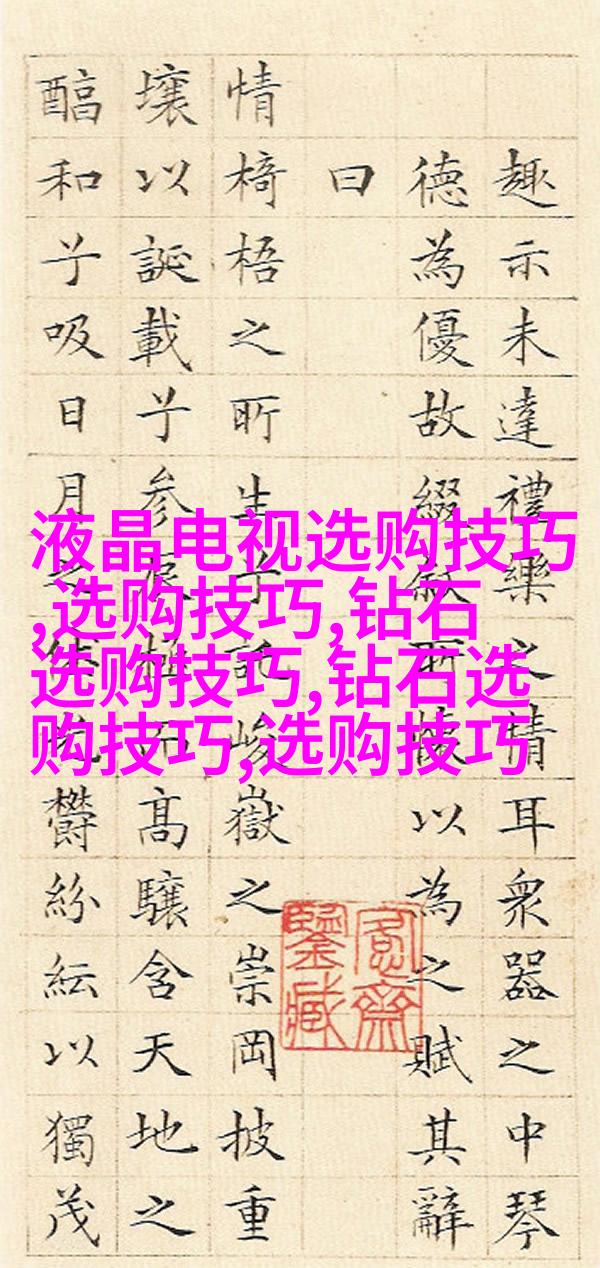 趣示未達禮樂之情耳衆器之中琴
德為優故綴敘所懷以為之賦其辭
曰
情椅梧之所生兮託峻嶽之崇岡披重
壤以誕載兮參辰極而高驤含天地之
醕和兮吸日月之休光鬱紛紜以獨茂
液晶电视选购技巧
,选购技巧,钻石
选购技巧,钻石选
购技巧,选购技巧
愙齋
鑒藏